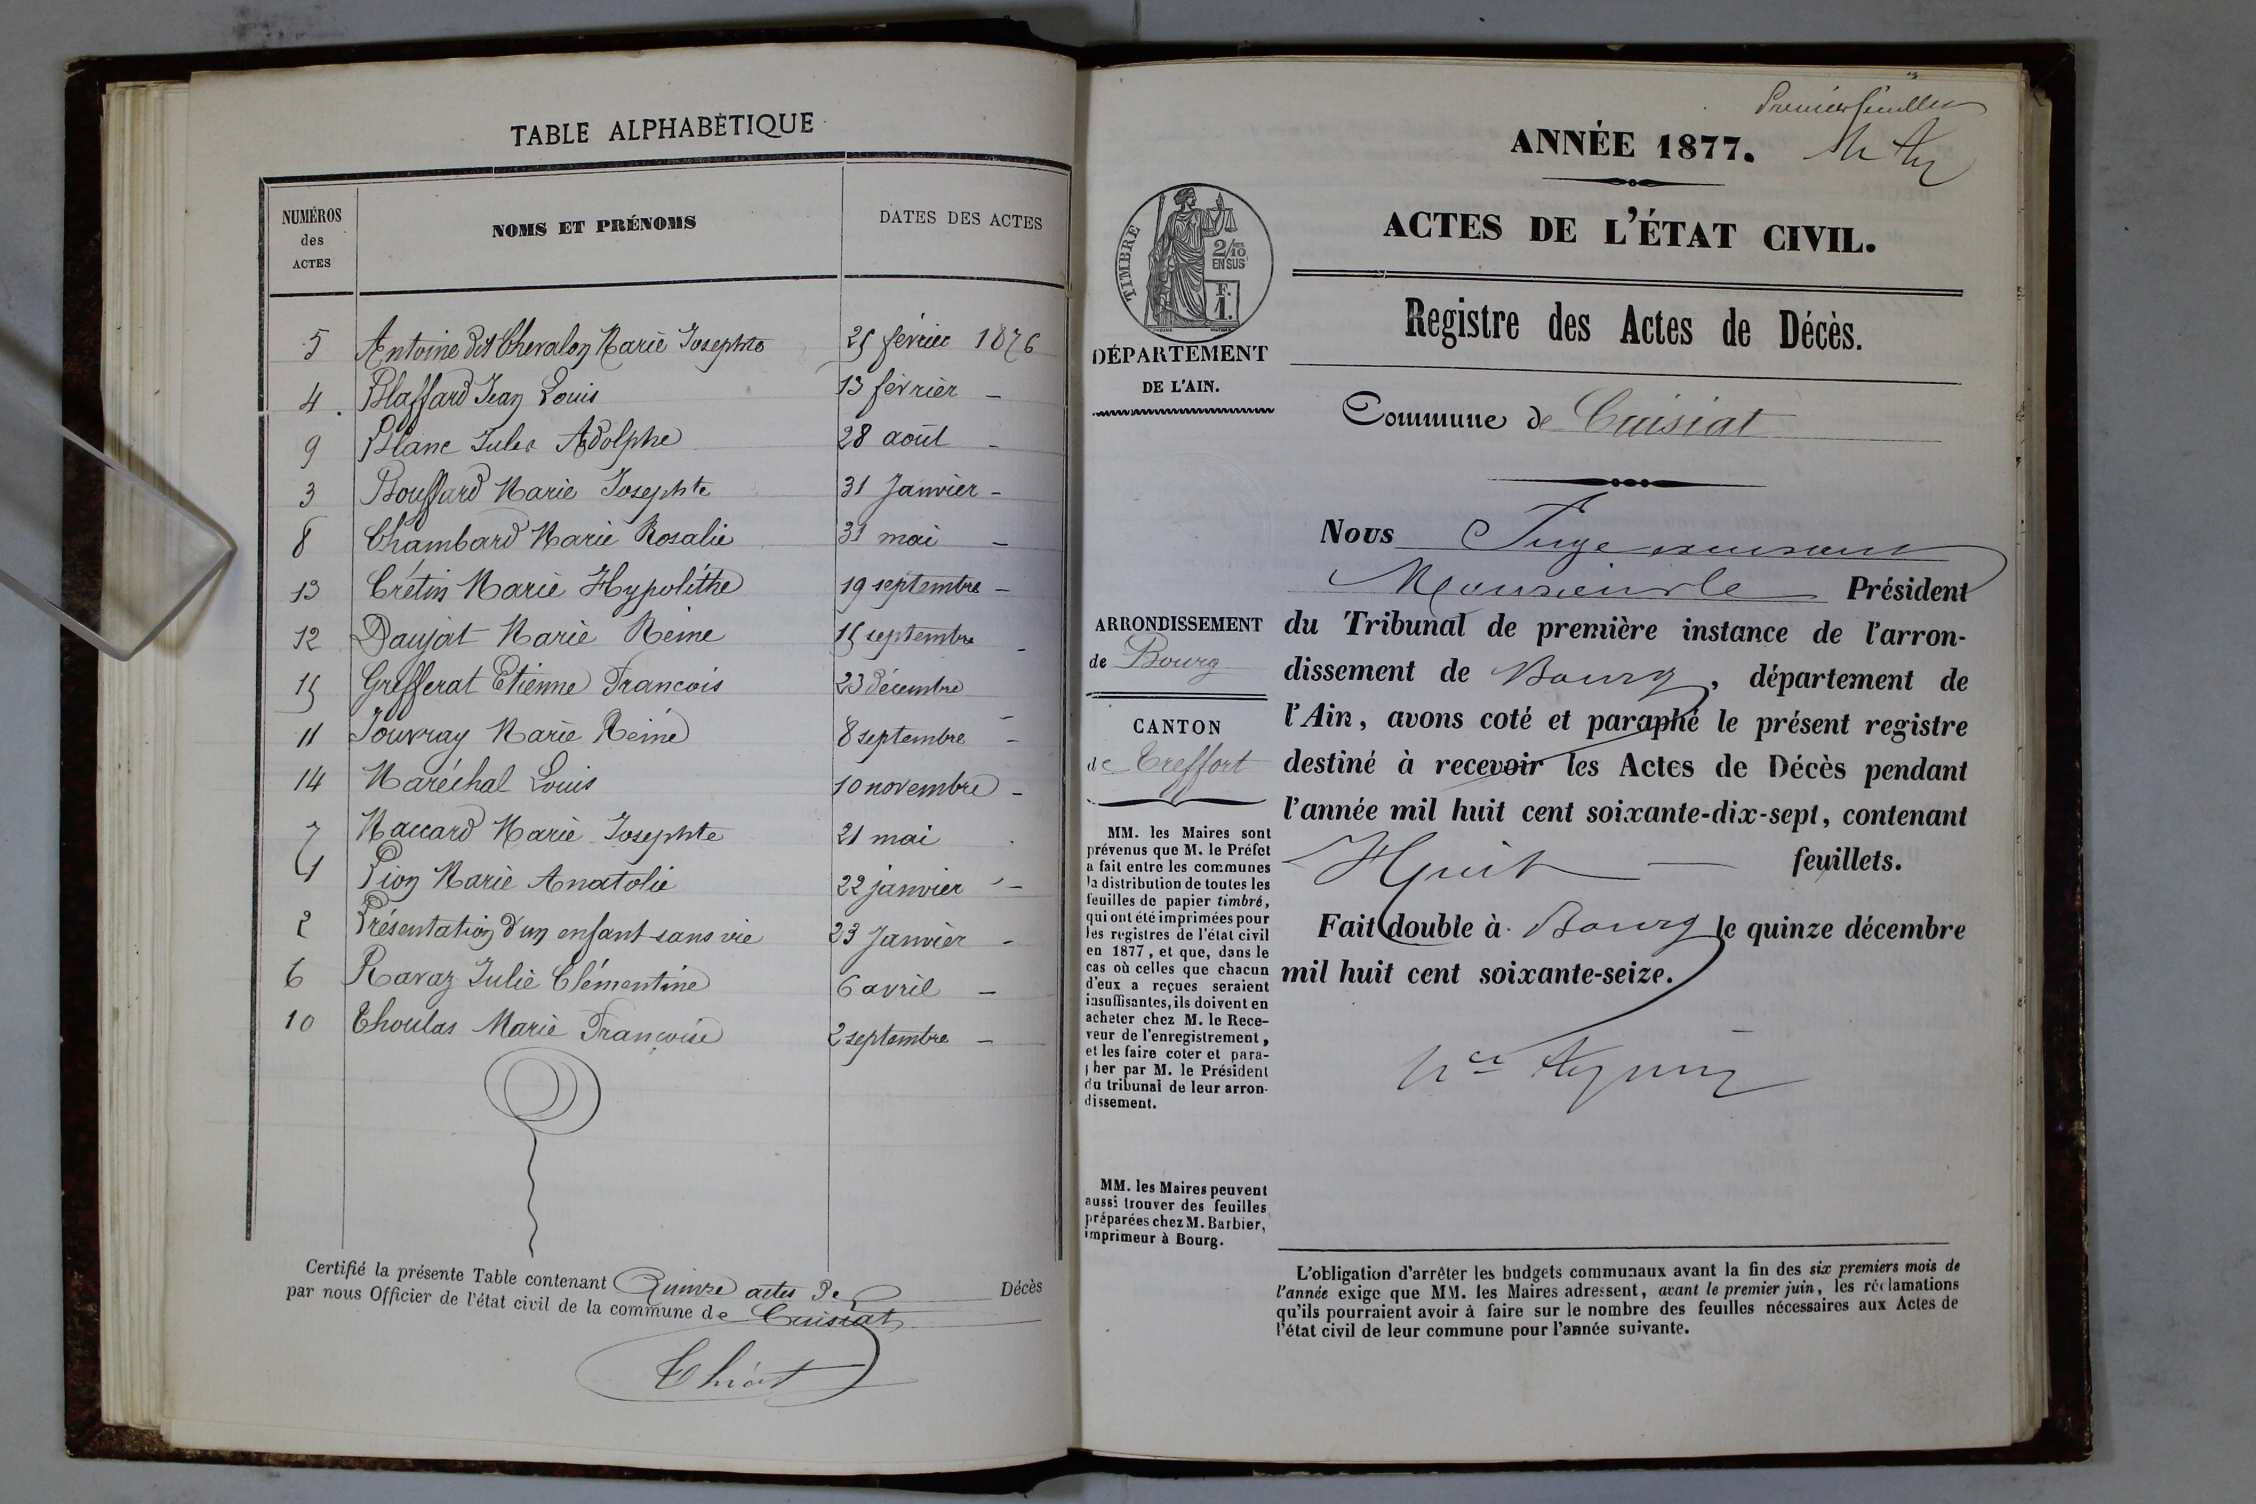 TABLE ALPHABÉTIQUE
NUMÉROS des ACTES
NOMS ET PRÉNOMS
DATES DES ACTES
5 Antoine dit Chevalon Marie Josephte 25 février 1876
4 Blaffard Jean Louis 13 février -
9 Blanc Jules Adolphe 28 août -
3 Bouffard Marie Josephte 31 Janvier -
8 Chambard Marie Rosalie 31 mai -
13 Crétin Marie Hypolithe 19 septembre -
12 Daujat Marie Reine 15 septembre -
15 Grefferat Etienne Francois 23 décembre -
11 Jouvray Marie Reine 8 septembre -
14 Maréchal Louis 10 novembre -
7 Maccard Marie Josephte 21 mai
1 Pion Marie Anatolie 22 janvier -
2 Présentation d'un enfant sans vie 23 Janvier -
6 Ravaz Julie Clémentine 6 avril -
10 Thoulas Marie Françoise 2 septembre -
Certifié la présente Table contenant Quinze actes de Décès
par nous Officier de l'état civil de la commune de Cuisiat
Thiot
Premier feuillet
ANNÉE 1877.
ACTES DE L'ÉTAT CIVIL.
TIMBRE
2/10 EN SUS
F. 1.
DÉPARTEMENT
DE L'AIN.
Registre des Actes de Décès.
Commune de Cuisiat
ARRONDISSEMENT
de Bourg
CANTON
de Treffort
MM. les Maires sont
prévenus que M. le Préfet
a fait entre les communes
la distribution de toutes les
feuilles de papier timbré,
qui ont été imprimées pour
les registres de l'état civil
en 1877, et que, dans le
cas où celles que chacun
d'eux a reçues seraient
insuffisantes, ils doivent en
acheter chez M. le Rece-
veur de l'enregistrement,
et les faire coter et para-
pher par M. le Président
du tribunal de leur arron-
dissement.
MM. les Maires peuvent
aussi trouver des feuilles
préparées chez M. Barbier,
imprimeur à Bourg.
Nous Juge
Monsieur le Président
du Tribunal de première instance de l'arron-
dissement de Bourg, département de
l'Ain, avons coté et paraphé le présent registre
destiné à recevoir les Actes de Décès pendant
l'année mil huit cent soixante-dix-sept, contenant
Huit feuillets.
Fait double à Bourg le quinze décembre
mil huit cent soixante-seize.
L'obligation d'arrêter les budgets communaux avant la fin des six premiers mois de
l'année exige que MM. les Maires adressent, avant le premier juin, les réclamations
qu'ils pourraient avoir à faire sur le nombre des feuilles nécessaires aux Actes de
l'état civil de leur commune pour l'année suivante.